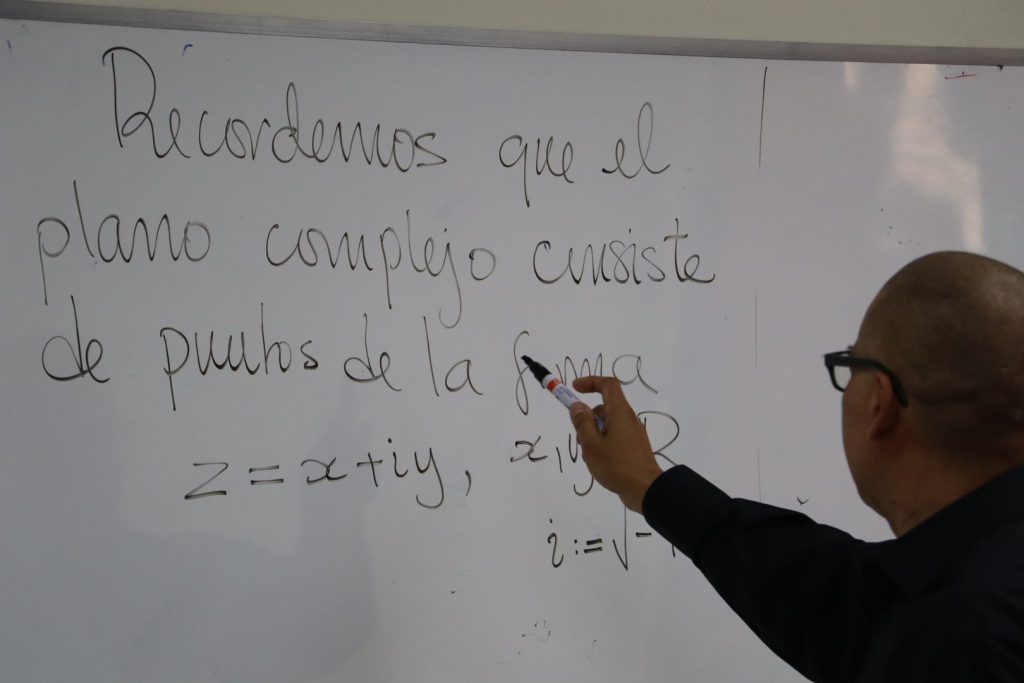 Recordemos que el
plano complejo consiste
de puntos de la forma
z = x + iy, x,y R
i := √-1